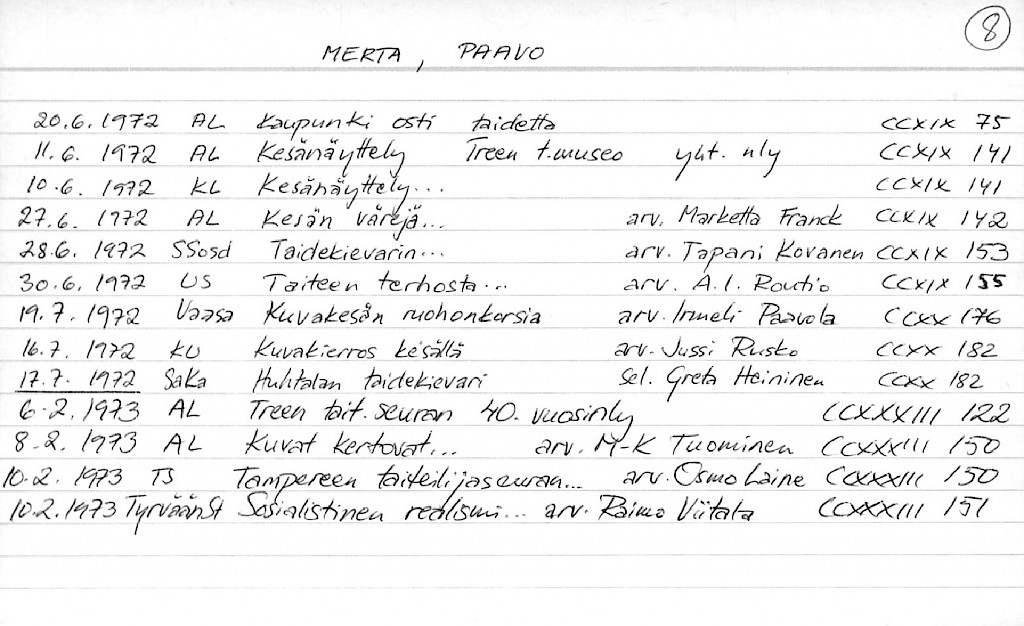 8
MERTA, PAAVO
20.6.1972 AL Kaupunki osti taidetta CCXIX 75
11.6. 1972 AL Kesänäyttely Treen t.museo yht. nly CCXIX 141
10.6. 1972 KL Kesänäyttely... CCXIX 141
27.6. 1972 AL Kesän värejä... arv. Marketta Franck CCXIX 142
28.6. 1972 SSosd Taidekievarin... arv. Tapani Kovanen CCXIX 153
30.6. 1972 US Taiteen terhosta... arv. A.I. Routio CCXIX 155
19.7. 1972 Vaasa Kuvakesän ruohonkorsia arv. Irmeli Paavola CCXX 176
16.7. 1972 KU Kuvakierros kesällä arv. Jussi Rusko CCXX 182
17.7. 1972 SaKa Huhtalan taidekievari sel. Greta Heininen CCXX 182
6.2. 1973 AL Treen tait.seuran 40. vuosinly CCXXXIII 122
8.2. 1973 AL Kuvat kertovat... arv. M-K Tuominen CCXXXIII 150
10.2. 1973 TS Tampereen taiteilijaseuran... arv. Osmo Laine CCXXXIII 150
10.2.1973 TyrväänSt Sosialistinen realismi... arv. Raimo Viitala CCXXXIII 151